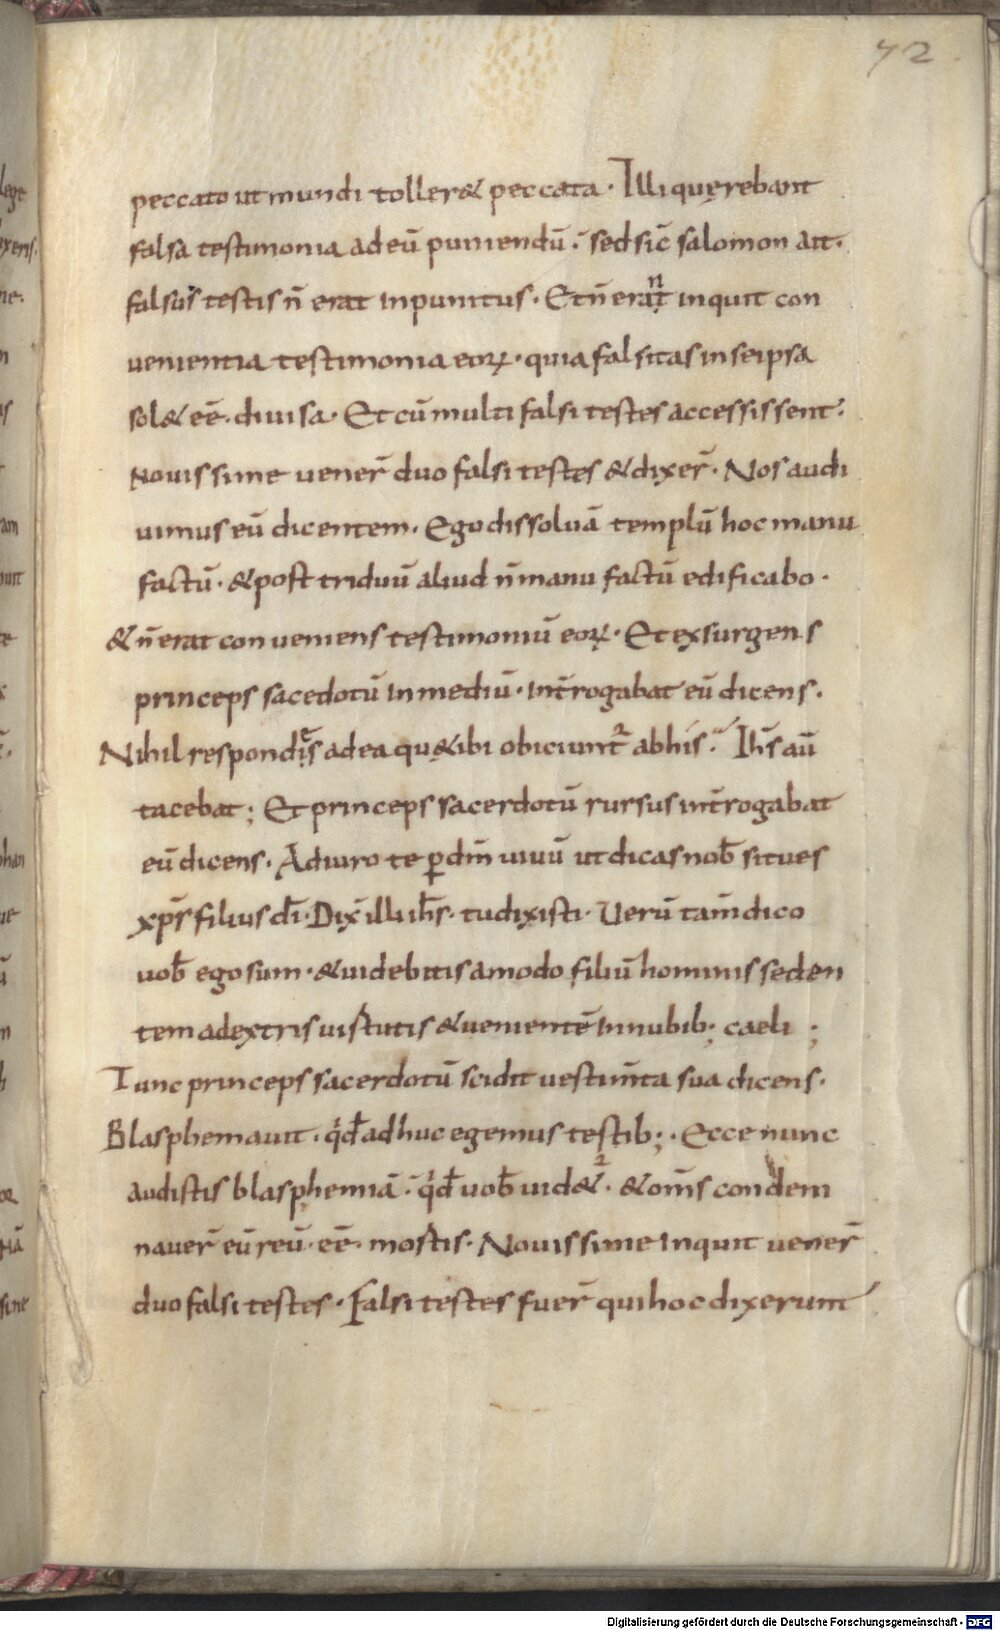 72
peccato ut mundi toller& peccata · Illi quęrebant
falsa testimonia ad eū puniendū · sed sic̄ salomon ait ·
falsus testis n̄ erat inpunitus · Et n̄ erant inquit con
uenientia testimonia eoꝝ · quia falsitas in se ipsa
sol& eē · diuisa · Et cū multi falsi testes accessissent ·
Nouissime uener̄ duo falsi testes & dixer̄ · Nos audi
uimus eū dicentem · Ego dissoluā templū hoc manu
factū · & post triduū aliud n̄ manu factū edificabo ·
& n̄ erat conueniens testimoniū eoꝝ · Et exsurgens
princeps sacedotū in mediū · int̄rogabat eū dicens ·
Nihil respondes ad ea quę tibi obiciunt᷑ ab his · Ihs̄ aū
tacebat ; Et princeps sacerdotū rursus int̄rogabat
eū dicens · Adiuro te ꝑ dm̄ uiuū ut dicas nob̄ si tu es
xp̄s filius dī · Dix̄ illi ih̄s · tu dixisti · Uerū tam̄ dico
uob̄ ego sum · & uidebitis amodo filiū hominis seden
tem a dextris uirtutis & uenientē in nubib; caeli ;
Tunc princeps sacerdotū scidit uestim̄ta sua dicens ·
Blasphemauit · qͥd adhuc egemus testib; · Ecce nunc
audistis blasphemiā · qͥd uob̄ uid&᷑ · & om̄s condem
nauer̄ eū reū · eē · mortis · Nouissime inquit uener̄
duo falsi testes · Falsi testes fuer̄ qui hoc dixerunt
Digitalisierung gefördert durch die Deutsche Forschungsgemeinschaft - DFG